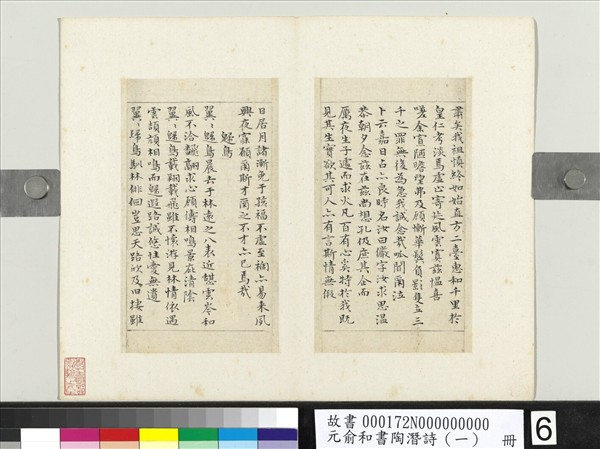 肅矣我祖慎終如始直方二臺惠和千里於
皇仁考淡焉虛止寄迹風雲寘茲愠喜
嗟余寡陋瞻望弗及顧慚華鬢負影隻立三
千之罪無後為急我誠念哉呱聞爾泣
卜云嘉日占亦良時名汝曰儼字汝求思温
恭朝夕念茲在茲尚想孔伋庶其企而
厲夜生子遽而求火凡百有心奚特於我既
見其生實欲其可人亦有言斯情無假
日居月諸漸免于孩福不虛至禍亦易來夙
興夜寐願爾斯才爾之不才亦已焉哉
歸鳥
翼〻歸鳥晨去于林遠之八表近憩雲岑和
風不洽翻翮求心顧儔相鳴景庇清陰
翼〻歸鳥載翔載飛雖不懷游見林情依遇
雲頡頏相鳴而歸遐路誠悠性愛無遺
翼〻歸鳥馴林徘徊豈思天路欣及旧棲雖
故書000172N000000000
元俞和書陶潛詩(一) 冊
6